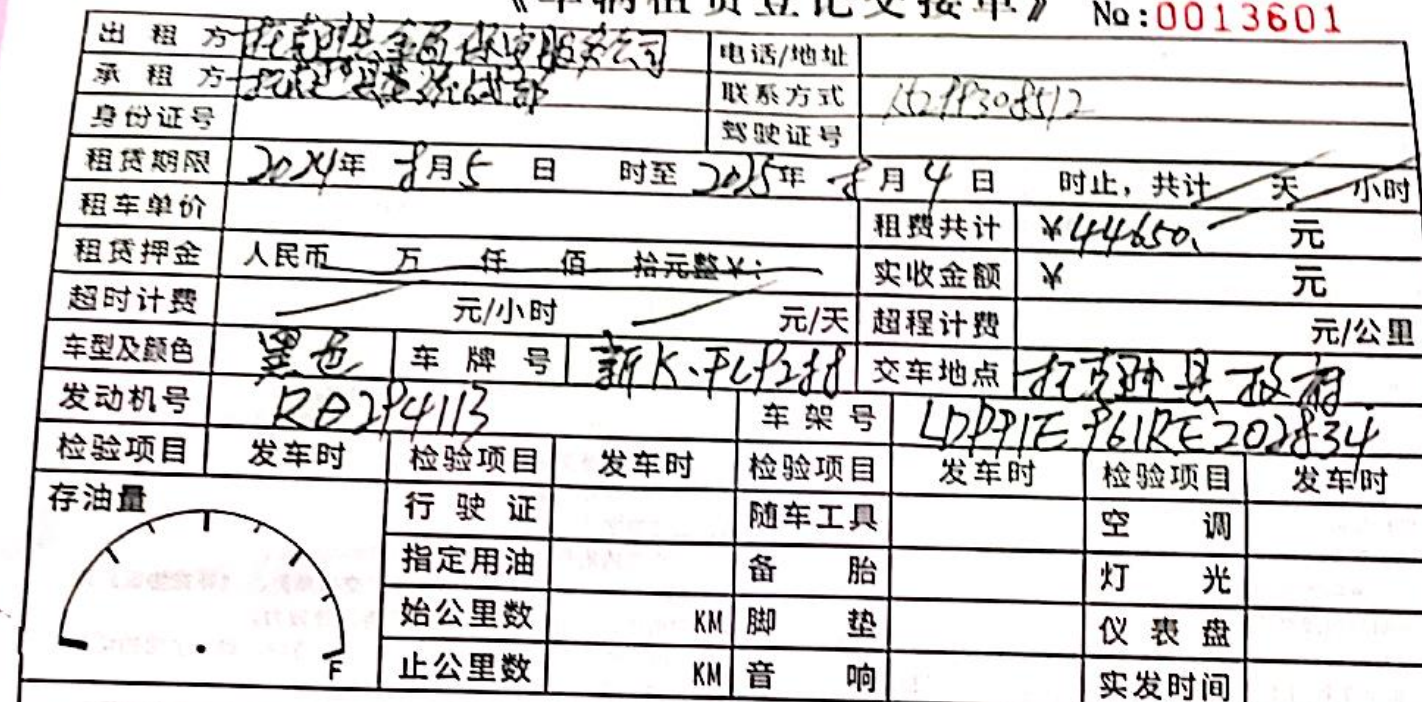 《车辆租赁登记交接单》 No:0013601
出租方 电话/地址
承租方 联系方式 15299308512
身份证号 驾驶证号
租赁期限 2024年8月5日 时至2025年8月4日 时止，共计 天 小时
租车单价 租费共计 ¥44650. 元
租赁押金 人民币 万 仟 佰 拾元整¥： 实收金额 ¥ 元
超时计费 元/小时 元/天 超程计费 元/公里
车型及颜色 黑色 车牌号 交车地点 托克逊县
发动机号 车架号
检验项目 发车时 检验项目 发车时 检验项目 发车时 检验项目 发车时
存油量 行驶证 随车工具 空调
指定用油 备胎 灯光
始公里数 KM 脚垫 仪表盘
F 止公里数 KM 音响 实发时间